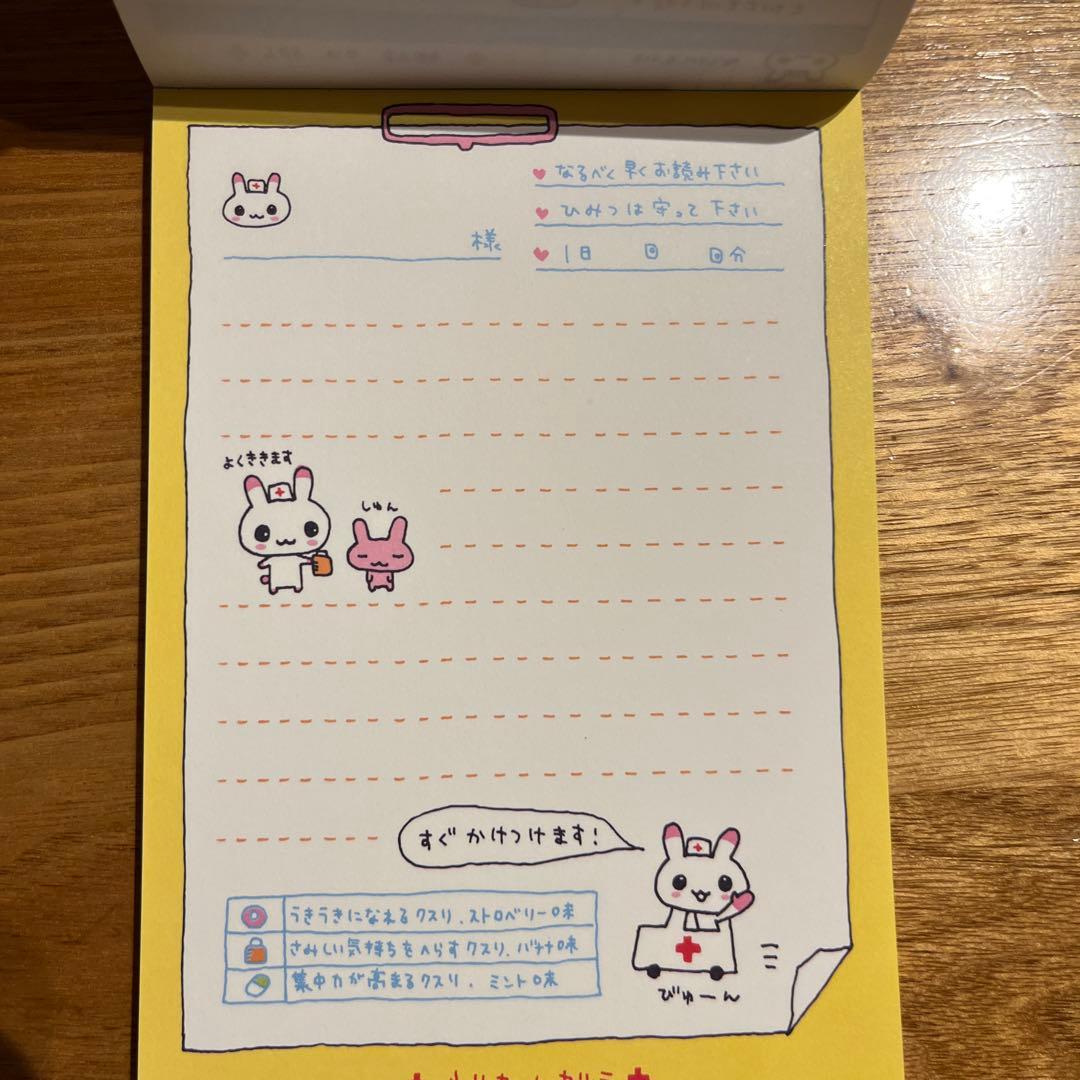 なるべく早くお読み下さい
ひみつは守って下さい
様
1日 回 回分
よくききます
しゅん
すぐかけつけます!
うきうきになれるクスリ、ストロベリー味
さみしい気持ちをへらすクスリ、バナナ味
集中力が高まるクスリ、ミント味
びゅーん